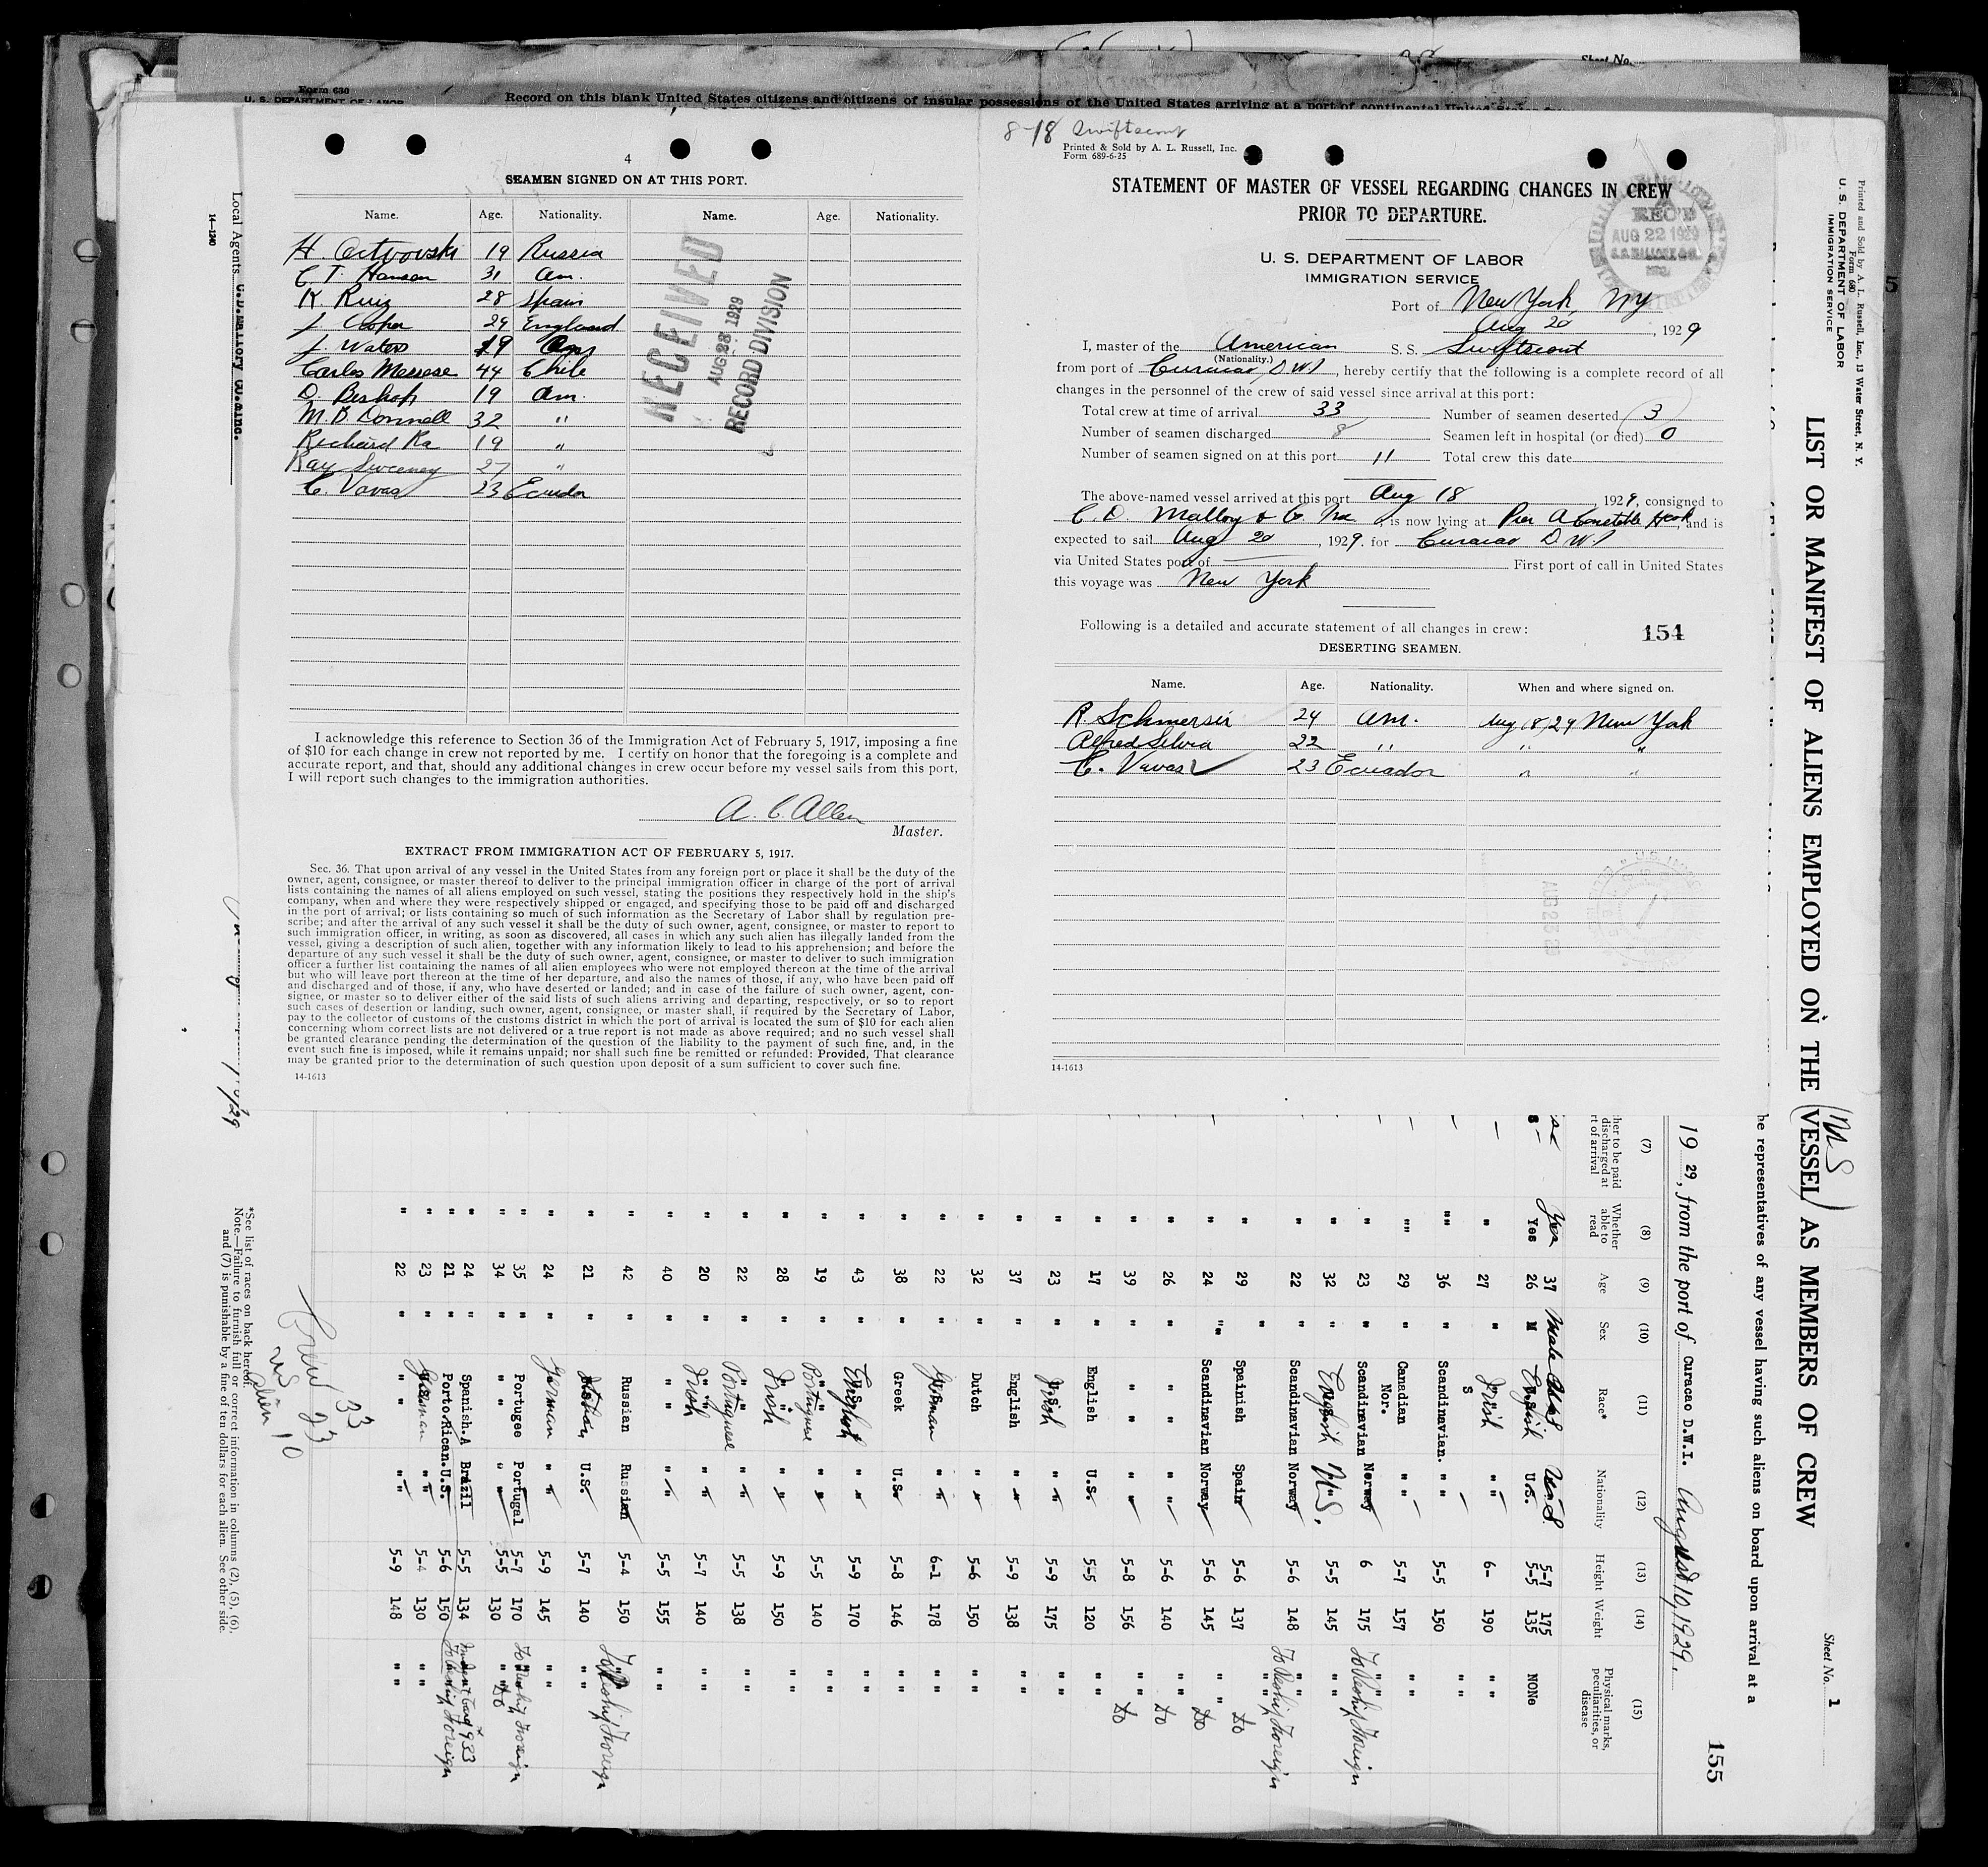 Sheet No.
Form 630
U. S. DEPARTMENT OF LABOR
Record on this blank United States citizens and citizens of insular possessions of the United States arriving at a port of continental United States
4
SEAMEN SIGNED ON AT THIS PORT.
Name. Age. Nationality. Name. Age. Nationality.
19 Russia
C. T. Hansen 31 Am.
K. Ruiz 28 Spain
J. Cooper 29 England
J. Waters 19
Carlos 44 Chile
D. Bishop 19 Am.
M. B Donnell 32 "
Richard Ra 19 "
Ray Sweeney 27 "
C. Vavas 23 Ecuador
RECEIVED
AUG 28 1929
RECORD DIVISION
I acknowledge this reference to Section 36 of the Immigration Act of February 5, 1917, imposing a fine
of $10 for each change in crew not reported by me. I certify on honor that the foregoing is a complete and
accurate report, and that, should any additional changes in crew occur before my vessel sails from this port,
I will report such changes to the immigration authorities.
A. C. Allen
Master.
EXTRACT FROM IMMIGRATION ACT OF FEBRUARY 5, 1917.
Sec. 36. That upon arrival of any vessel in the United States from any foreign port or place it shall be the duty of the
owner, agent, consignee, or master thereof to deliver to the principal immigration officer in charge of the port of arrival
lists containing the names of all aliens employed on such vessel, stating the positions they respectively hold in the ship's
company, when and where they were respectively shipped or engaged, and specifying those to be paid off and discharged
in the port of arrival; or lists containing so much of such information as the Secretary of Labor shall by regulation pre-
scribe; and after the arrival of any such vessel it shall be the duty of such owner, agent, consignee, or master to report to
such immigration officer, in writing, as soon as discovered, all cases in which any such alien has illegally landed from the
vessel, giving a description of such alien, together with any information likely to lead to his apprehension; and before the
departure of any such vessel it shall be the duty of such owner, agent, consignee, or master to deliver to such immigration
officer a further list containing the names of all alien employees who were not employed thereon at the time of the arrival
but who will leave port thereon at the time of her departure, and also the names of those, if any, who have been paid off
and discharged and of those, if any, who have deserted or landed; and in case of the failure of such owner, agent, con-
signee, or master so to deliver either of the said lists of such aliens arriving and departing, respectively, or so to report
such cases of desertion or landing, such owner, agent, consignee, or master shall, if required by the Secretary of Labor,
pay to the collector of customs of the customs district in which the port of arrival is located the sum of $10 for each alien
concerning whom correct lists are not delivered or a true report is not made as above required; and no such vessel shall
be granted clearance pending the determination of the question of the liability to the payment of such fine, and, in the
event such fine is imposed, while it remains unpaid; nor shall such fine be remitted or refunded: Provided, That clearance
may be granted prior to the determination of such question upon deposit of a sum sufficient to cover such fine.
14-1613
8-18 Swiftscout
Printed & Sold by A. L. Russell, Inc.
Form 689-6-25
STATEMENT OF MASTER OF VESSEL REGARDING CHANGES IN CREW
PRIOR TO DEPARTURE.
REC'D
AUG 22 1929
U. S. DEPARTMENT OF LABOR
IMMIGRATION SERVICE
Port of New York, NY
Aug 20, 1929
I, master of the American S. S. Swiftscout
(Nationality.)
from port of Curacao, D W I, hereby certify that the following is a complete record of all
changes in the personnel of the crew of said vessel since arrival at this port:
Total crew at time of arrival 33 Number of seamen deserted 3
Number of seamen discharged 8 Seamen left in hospital (or died) 0
Number of seamen signed on at this port 11 Total crew this date
The above-named vessel arrived at this port Aug 18, 1929, consigned to
C. D. Mallory & Co. Inc. is now lying at Pier A Constable Hook, and is
expected to sail Aug 20, 1929. for Curacao D. W I
via United States port of First port of call in United States
this voyage was New York
Following is a detailed and accurate statement of all changes in crew: 154
DESERTING SEAMEN.
Name. Age. Nationality. When and where signed on.
R. Schmersir 24 Am. Aug 18, 29 New York
Alfred Silvia 22 " " "
C. Vavas 23 Ecuador " "
14-1613
Local Agents C.D.Mallory Co.Inc.
14-1240
Printed and Sold by A. L. Russell, Inc., 13 Water Street, N. Y.
Form 680
U. S. DEPARTMENT OF LABOR
IMMIGRATION SERVICE
LIST OR MANIFEST OF ALIENS EMPLOYED ON THE VESSEL AS MEMBERS OF CREW
(MS)
Sheet No. 1
he representatives of any vessel having such aliens on board upon arrival at a
1929, from the port of Curacao D.W.I. August 10, 1929.
155
(7) (8) (9) (10) (11) (12) (13) (14) (15)
her to be paid discharged at rt of arrival
Whether able to read
Age Sex Race* Nationality Height Weight
Physical marks, peculiarities, or disease
Yes 37 Male U.S. 5-7 175
Yes 26 M English U.S. 5-5 135 NONe
" 27 " Irish " " 6- 190 " "
" 36 " Scandinavian. " " 5-5 150 " "
" 29 " Canadian Nor. " " 5-7 157 " "
" 23 " Scandinavian Norway 6 175 To Reship Foreign
" 32 " English U.S. 5-5 145 " "
" 22 " Scandinavian Norway 5-6 148 To Reship Foreign
" 29 " Spainish Spain 5-6 137 " " do
" 24 " Scandinavian Norway 5-6 145 " " do
" 26 " " " " " 5-6 140 " " do
" 39 " " " " " 5-8 156 " " do
" 17 " English U.S. 5-5 120 " "
" 23 " Irish " " 5-9 175 " "
" 37 " English " " 5-9 138 " "
" 32 " Dutch " " 5-6 150 " "
" 22 " German " " 6-1 178 " "
" 38 " Greek U.S. 5-8 146 " "
" 43 " English " " 5-9 170 " "
" 19 " Portuguese " " 5-5 140 " "
" 28 " Irish " " 5-9 150 " "
" 22 " Portuguese " " 5-5 138 " "
" 20 " Irish " " 5-7 140 " "
" 40 " " " " " 5-5 155 " "
" 42 " Russian Russian 5-4 150 To Reship Foreign
" 21 " U.S. 5-7 140 " "
" 24 " German " " 5-9 145 " "
" 35 " Portugee Portugal 5-7 170 To Reship Foreign
" 34 " " " " " 5-5 130 " " do
" 24 " Spanish.A Brazil 5-5 134
" 21 " Porto.Rican.U.S. 5-6 150 To Reship Foreign
" 23 " German " " 5-4 130 " "
" 22 " " " " " 5-9 148 " "
Crew 33
US 23
Alien 10
*See list of races on back hereof.
Note.—Failure to furnish full or correct information in columns (2), (5), (6),
and (7) is punishable by a fine of ten dollars for each alien. See other side.